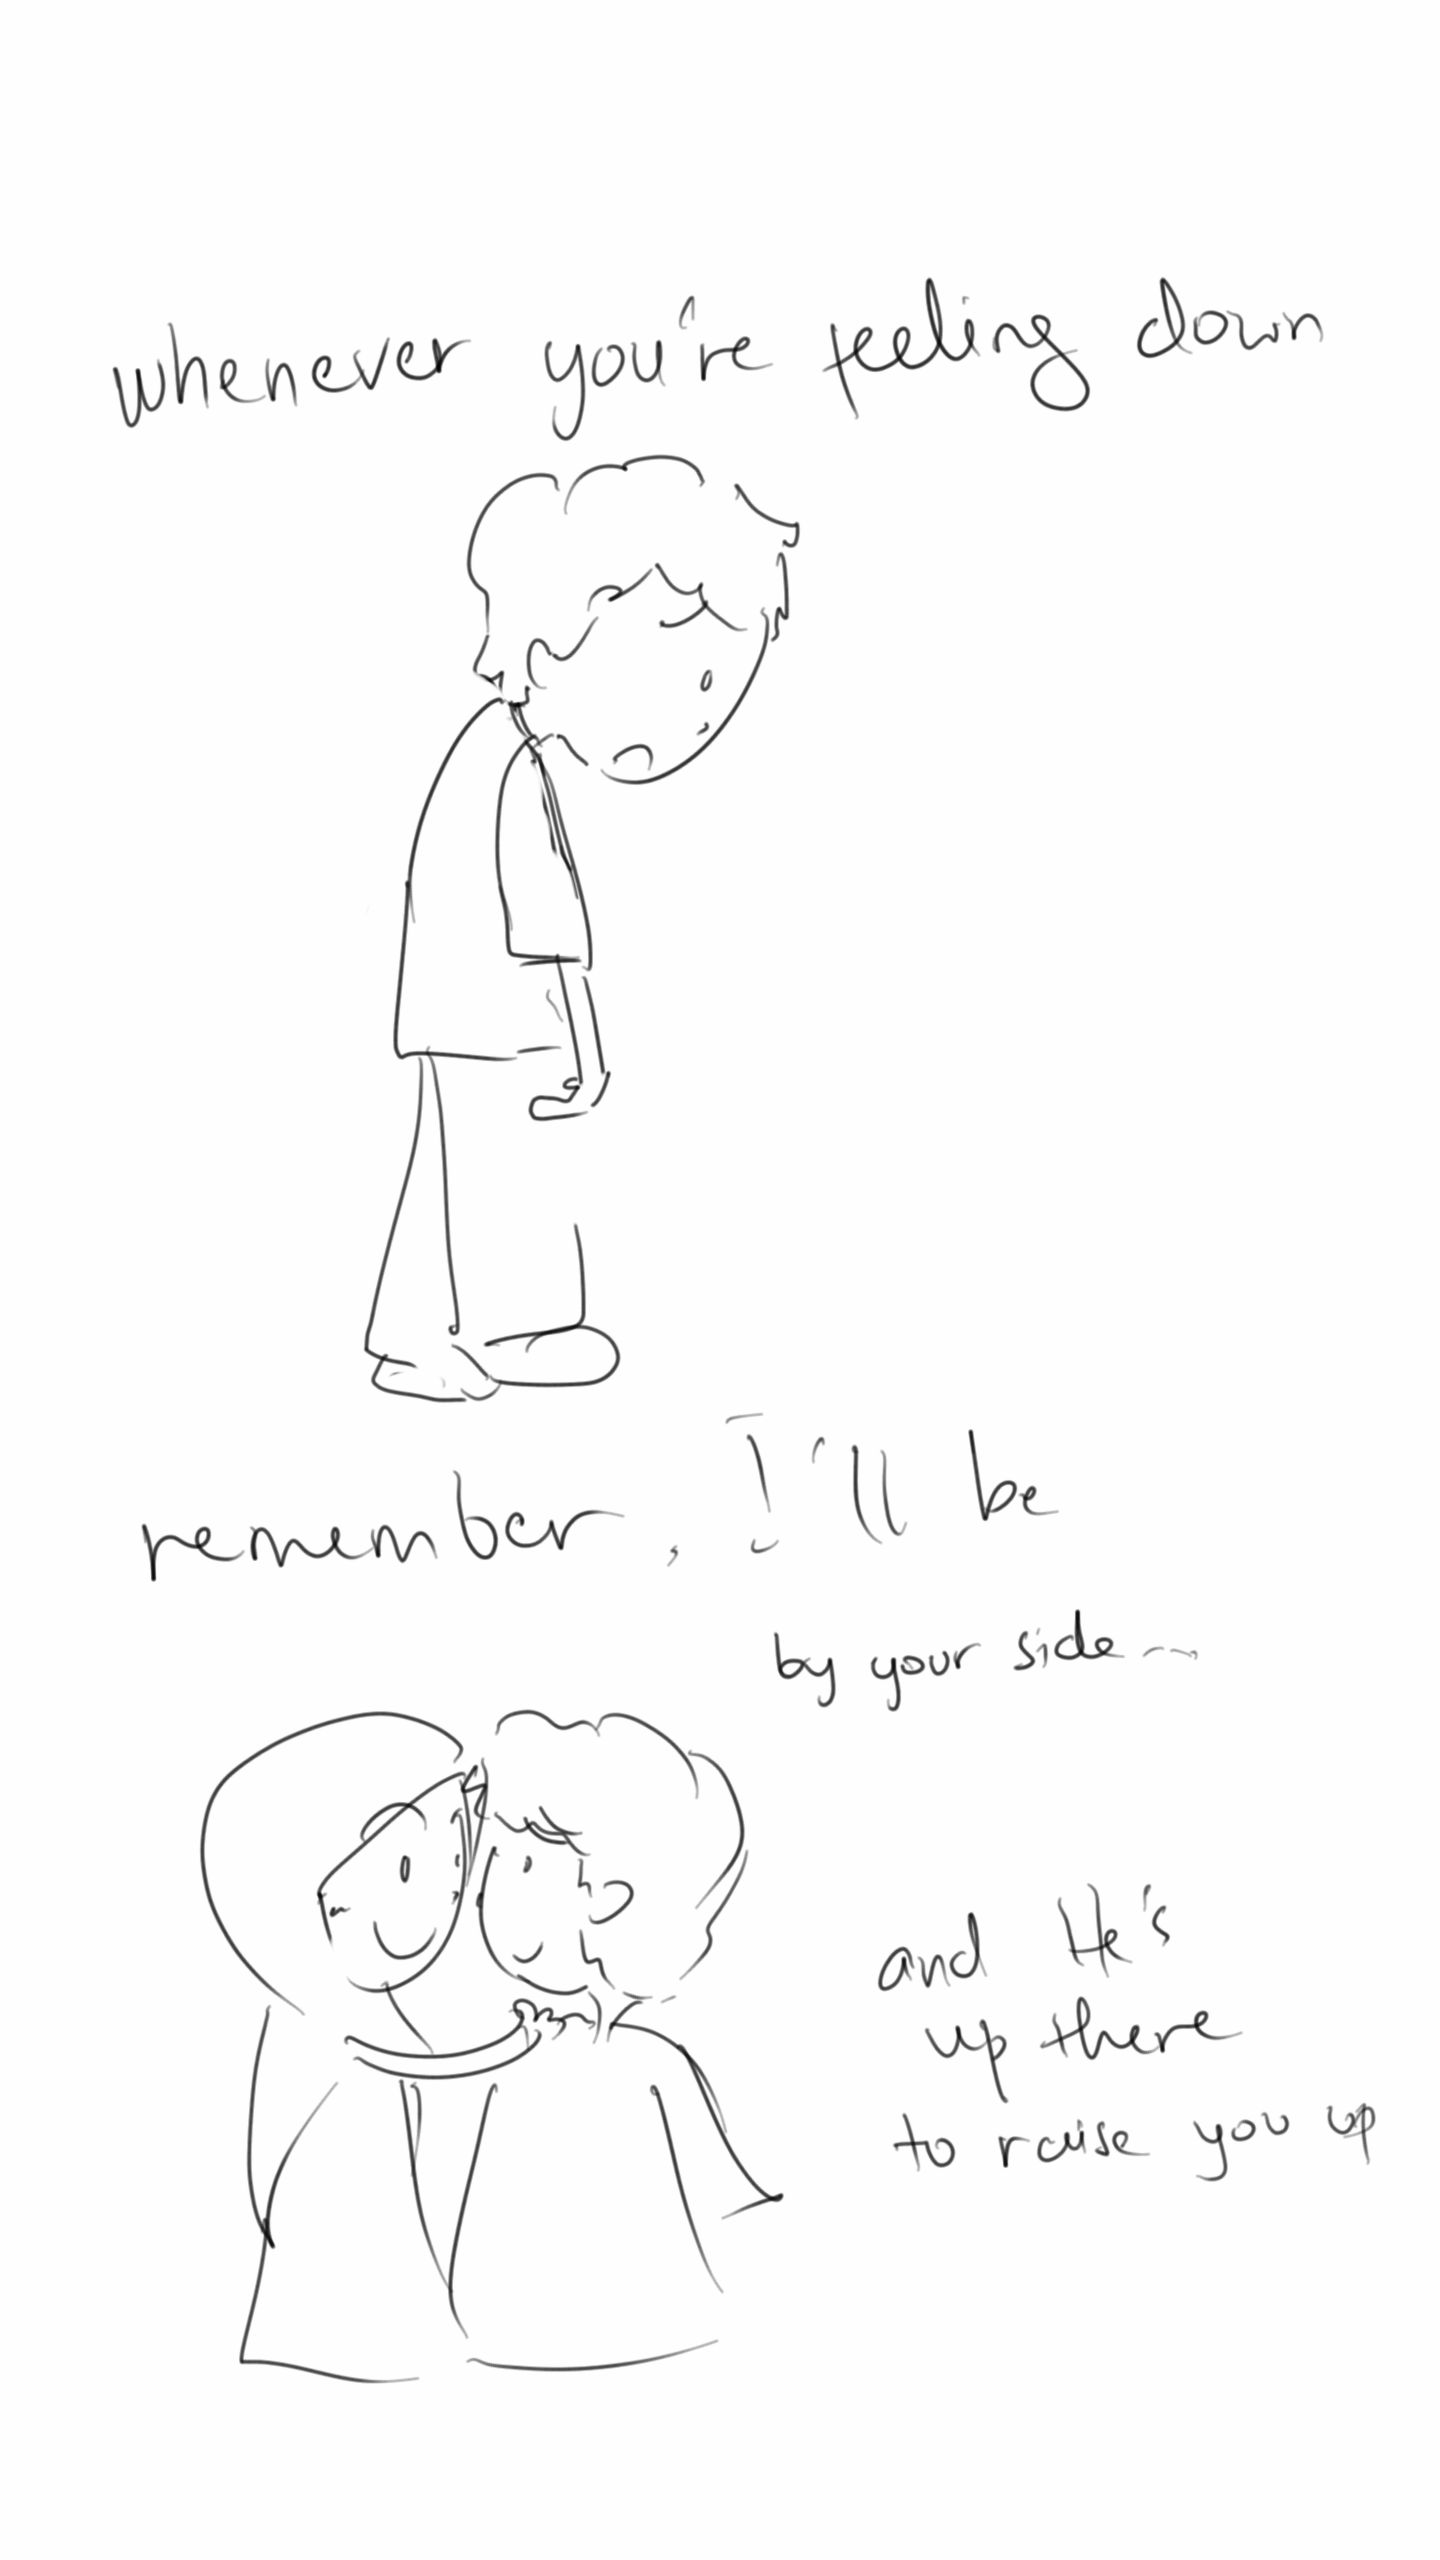 whenever you're feeling down
remember, I'll be
by your side...
and He's
up there
to raise you up